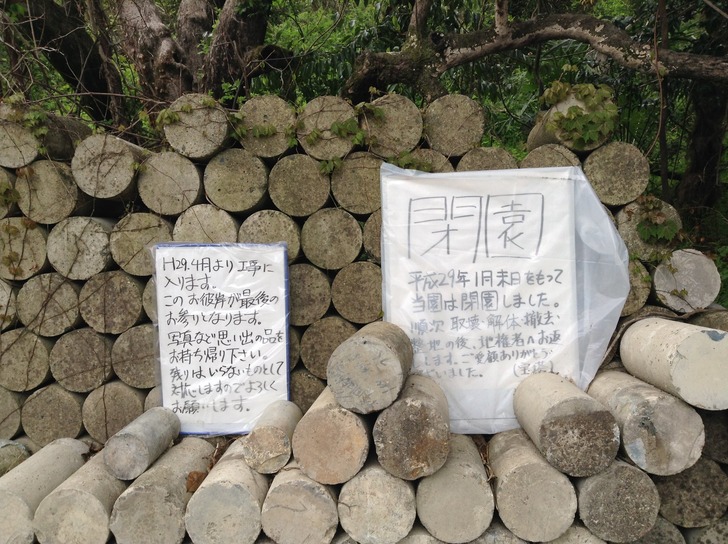 H29.4月より工事に
入ります。
このお彼岸が最後の
お参りとなります。
写真など思い出の品を
お持ち帰り下さい。
残りはいらないものとして
対応しますのでよろしく
お願いします。
閉園
平成29年1月末日をもって
当園は閉園しました。
順次取壊・解体・撤去、
整地の後、地権者へお返
します。ご愛顧ありがとう
ございました。